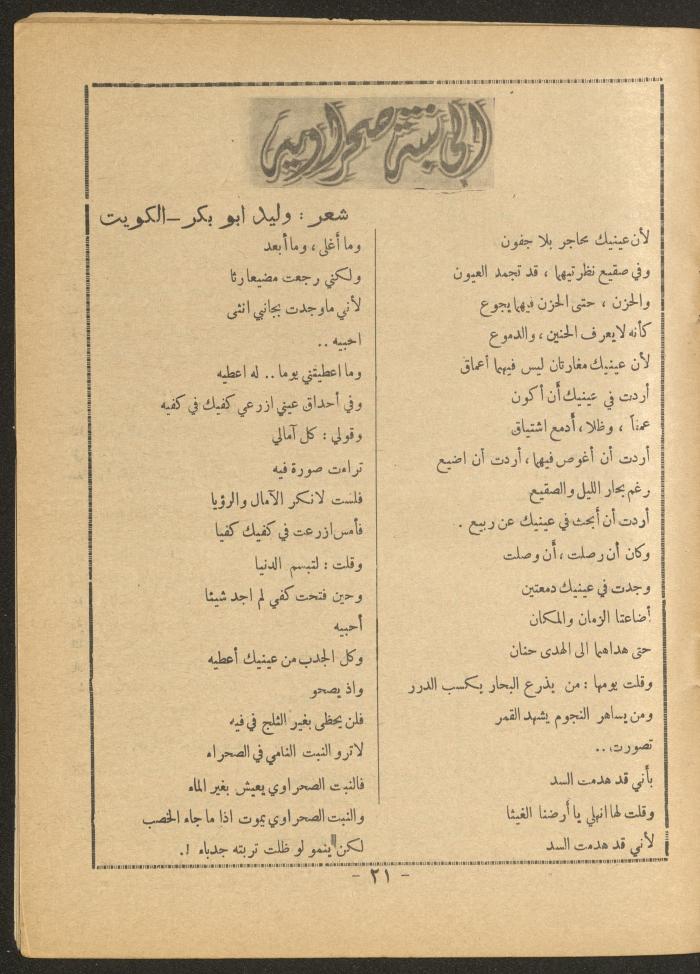 الى نبتة صحراوية
شعر : وليد ابو بكر - الكويت
لأن عينيك محاجر بلا جفون
وفي صقيع نظرتيهما ، قد تجمد العيون
والحزن ، حتى الحزن فيهما يجوع
كأنه لايعرف الحنين ، والدموع
لأن عينيك مغارتان ليس فيهما أعماق
أردت في عينيك أن أكون
عمقاً ، وظلا ، أدمع اشتياق
أردت أن أغوص فيهما ، أردت أن اضيع
رغم بحار الليل والصقيع
أردت أن أبحث في عينيك عن ربيع .
وكان أن رصلت ، أن وصلت
وجدت في عينيك دمعتين
أضاعتا الزمان والمكان
حتى هداهما الى الهدى حنان
وقلت يومها : من يذرع البحار يكسب الدرر
ومن يساهر النجوم يشهد القمر
تصورت ..
بأني قد هدمت السد
وقلت لها انهلي يا أرضنا الغيثا
لأني قد هدمت السد
وما أغلى ، وما أبعد
ولكني رجعت مضيعا رثا
لأني ماوجدت بجانبي انثى
احبيه ..
وما اعطيتني يوما .. له اعطيه
وفي أحداق عيني ازرعي كفيك في كفيه
وقولي : كل آمالي
تراءت صورة فيه
فلست لانكر الآمال والرؤيا
فأمس ازرعت في كفيك كفيا
وقلت : لتبسم الدنيا
وحين فتحت كفي لم اجد شيئا
أحبيه
وكل الجدب من عينيك أعطيه
واذ يصحو
فلن يحظى بغير الثلج في فيه
لاترو النبت النامي في الصحراء
فالنبت الصحراوي يعيش بغير الماء
والنبت الصحراوي يموت اذا ما جاء الخصب
لكن ينمو لو ظلت تربته جدباء !.
- ٢١ -